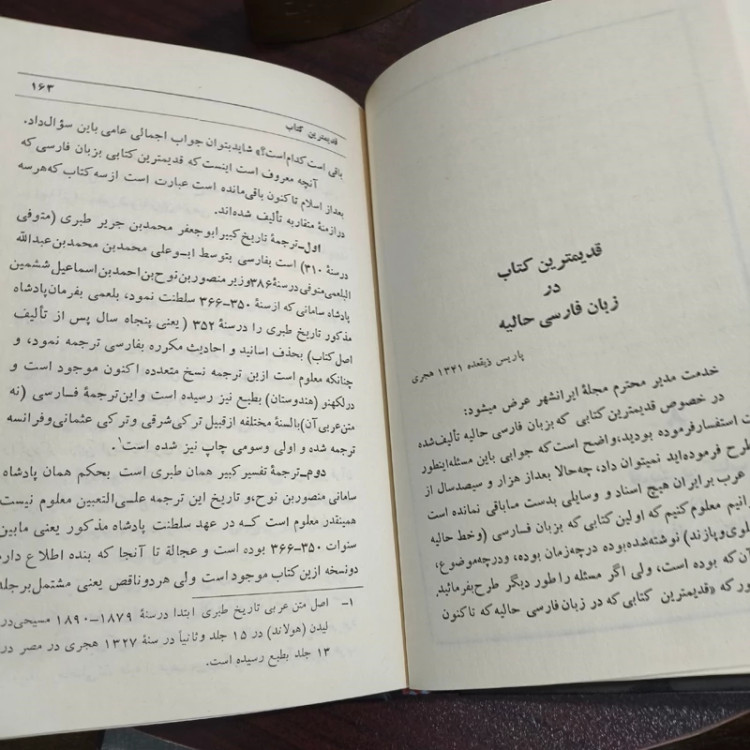 قدیمترین کتاب
در
زبان فارسی حالیه
پاریس ذیقعده ۱۳۴۱ هجری
خدمت مدیر محترم مجلهٔ ایرانشهر عرض میشود:
در خصوص قدیمترین کتابی که بزبان فارسی حالیه تألیف شده
استفسار فرموده بودید، واضح است که جوابی باین مسئله اینطور
طرح فرموده‌اید نمیتوان داد، چه حالا بعد از هزار و سیصد سال از
عرب بر ایران هیچ اسناد و وسایلی بدست ما باقی نمانده است
معلوم کنیم که اولین کتابی که بزبان فارسی (و خط حالیه
و پازند) نوشته شده بوده در چه زمان بوده، و در چه موضوع،
آن که بوده است، ولی اگر مسئله را طور دیگر طرح بفرمائید
که «قدیمترین کتابی که در زبان فارسی حالیه که تا کنون
قدیمترین کتاب ۱۶۳
باقی است کدام است؟» شاید بتوان جواب اجمالی عامی باین سؤال داد.
آنچه معروف است اینست که قدیمترین کتابی بزبان فارسی که
بعد از اسلام تا کنون باقی مانده است عبارت است از سه کتاب که هر سه
در ازمنهٔ متقاربه تألیف شده‌اند.
اول – ترجمهٔ تاریخ کبیر ابوجعفر محمد بن جریر طبری (متوفی
در سنهٔ ۳۱۰) است بفارسی بتوسط ابوعلی محمد بن محمد بن عبدالله
البلعمی متوفی در سنهٔ ۳۸۶ وزیر منصور بن نوح بن احمد بن اسماعیل ششمین
پادشاه سامانی که از سنهٔ ۳۵۰–۳۶۶ سلطنت نمود، بلعمی بفرمان پادشاه
مذکور تاریخ طبری را در سنهٔ ۳۵۲ (یعنی پنجاه سال پس از تألیف
اصل کتاب) بحذف اسانید و احادیث مکرره بفارسی ترجمه نمود، و
چنانکه معلوم است ازین ترجمه نسخ متعدده اکنون موجود است و
در لکهنو (هندوستان) بطبع نیز رسیده است و این ترجمهٔ فارسی (نه
متن عربی آن) بالسنهٔ مختلفه از قبیل ترکی شرقی و ترکی عثمانی و فرانسه
ترجمه شده و اولی و سومی چاپ نیز شده است۱.
دوم – ترجمهٔ تفسیر کبیر همان طبری است بحکم همان پادشاه
سامانی منصور بن نوح، و تاریخ این ترجمه علی‌التعیین معلوم نیست
همینقدر معلوم است که در عهد سلطنت پادشاه مذکور یعنی مابین
سنوات ۳۵۰–۳۶۶ بوده است و عجالة تا آنجا که بنده اطلاع دارد
دو نسخه ازین کتاب موجود است ولی هر دو ناقص یعنی مشتمل بر جلد
۱– اصل متن عربی تاریخ طبری ابتدا در سنهٔ ۱۸۷۹–۱۸۹۰ مسیحی در
لیدن (هولاند) در ۱۵ جلد و ثانیاً در سنهٔ ۱۳۲۷ هجری در مصر در
۱۳ جلد بطبع رسیده است.